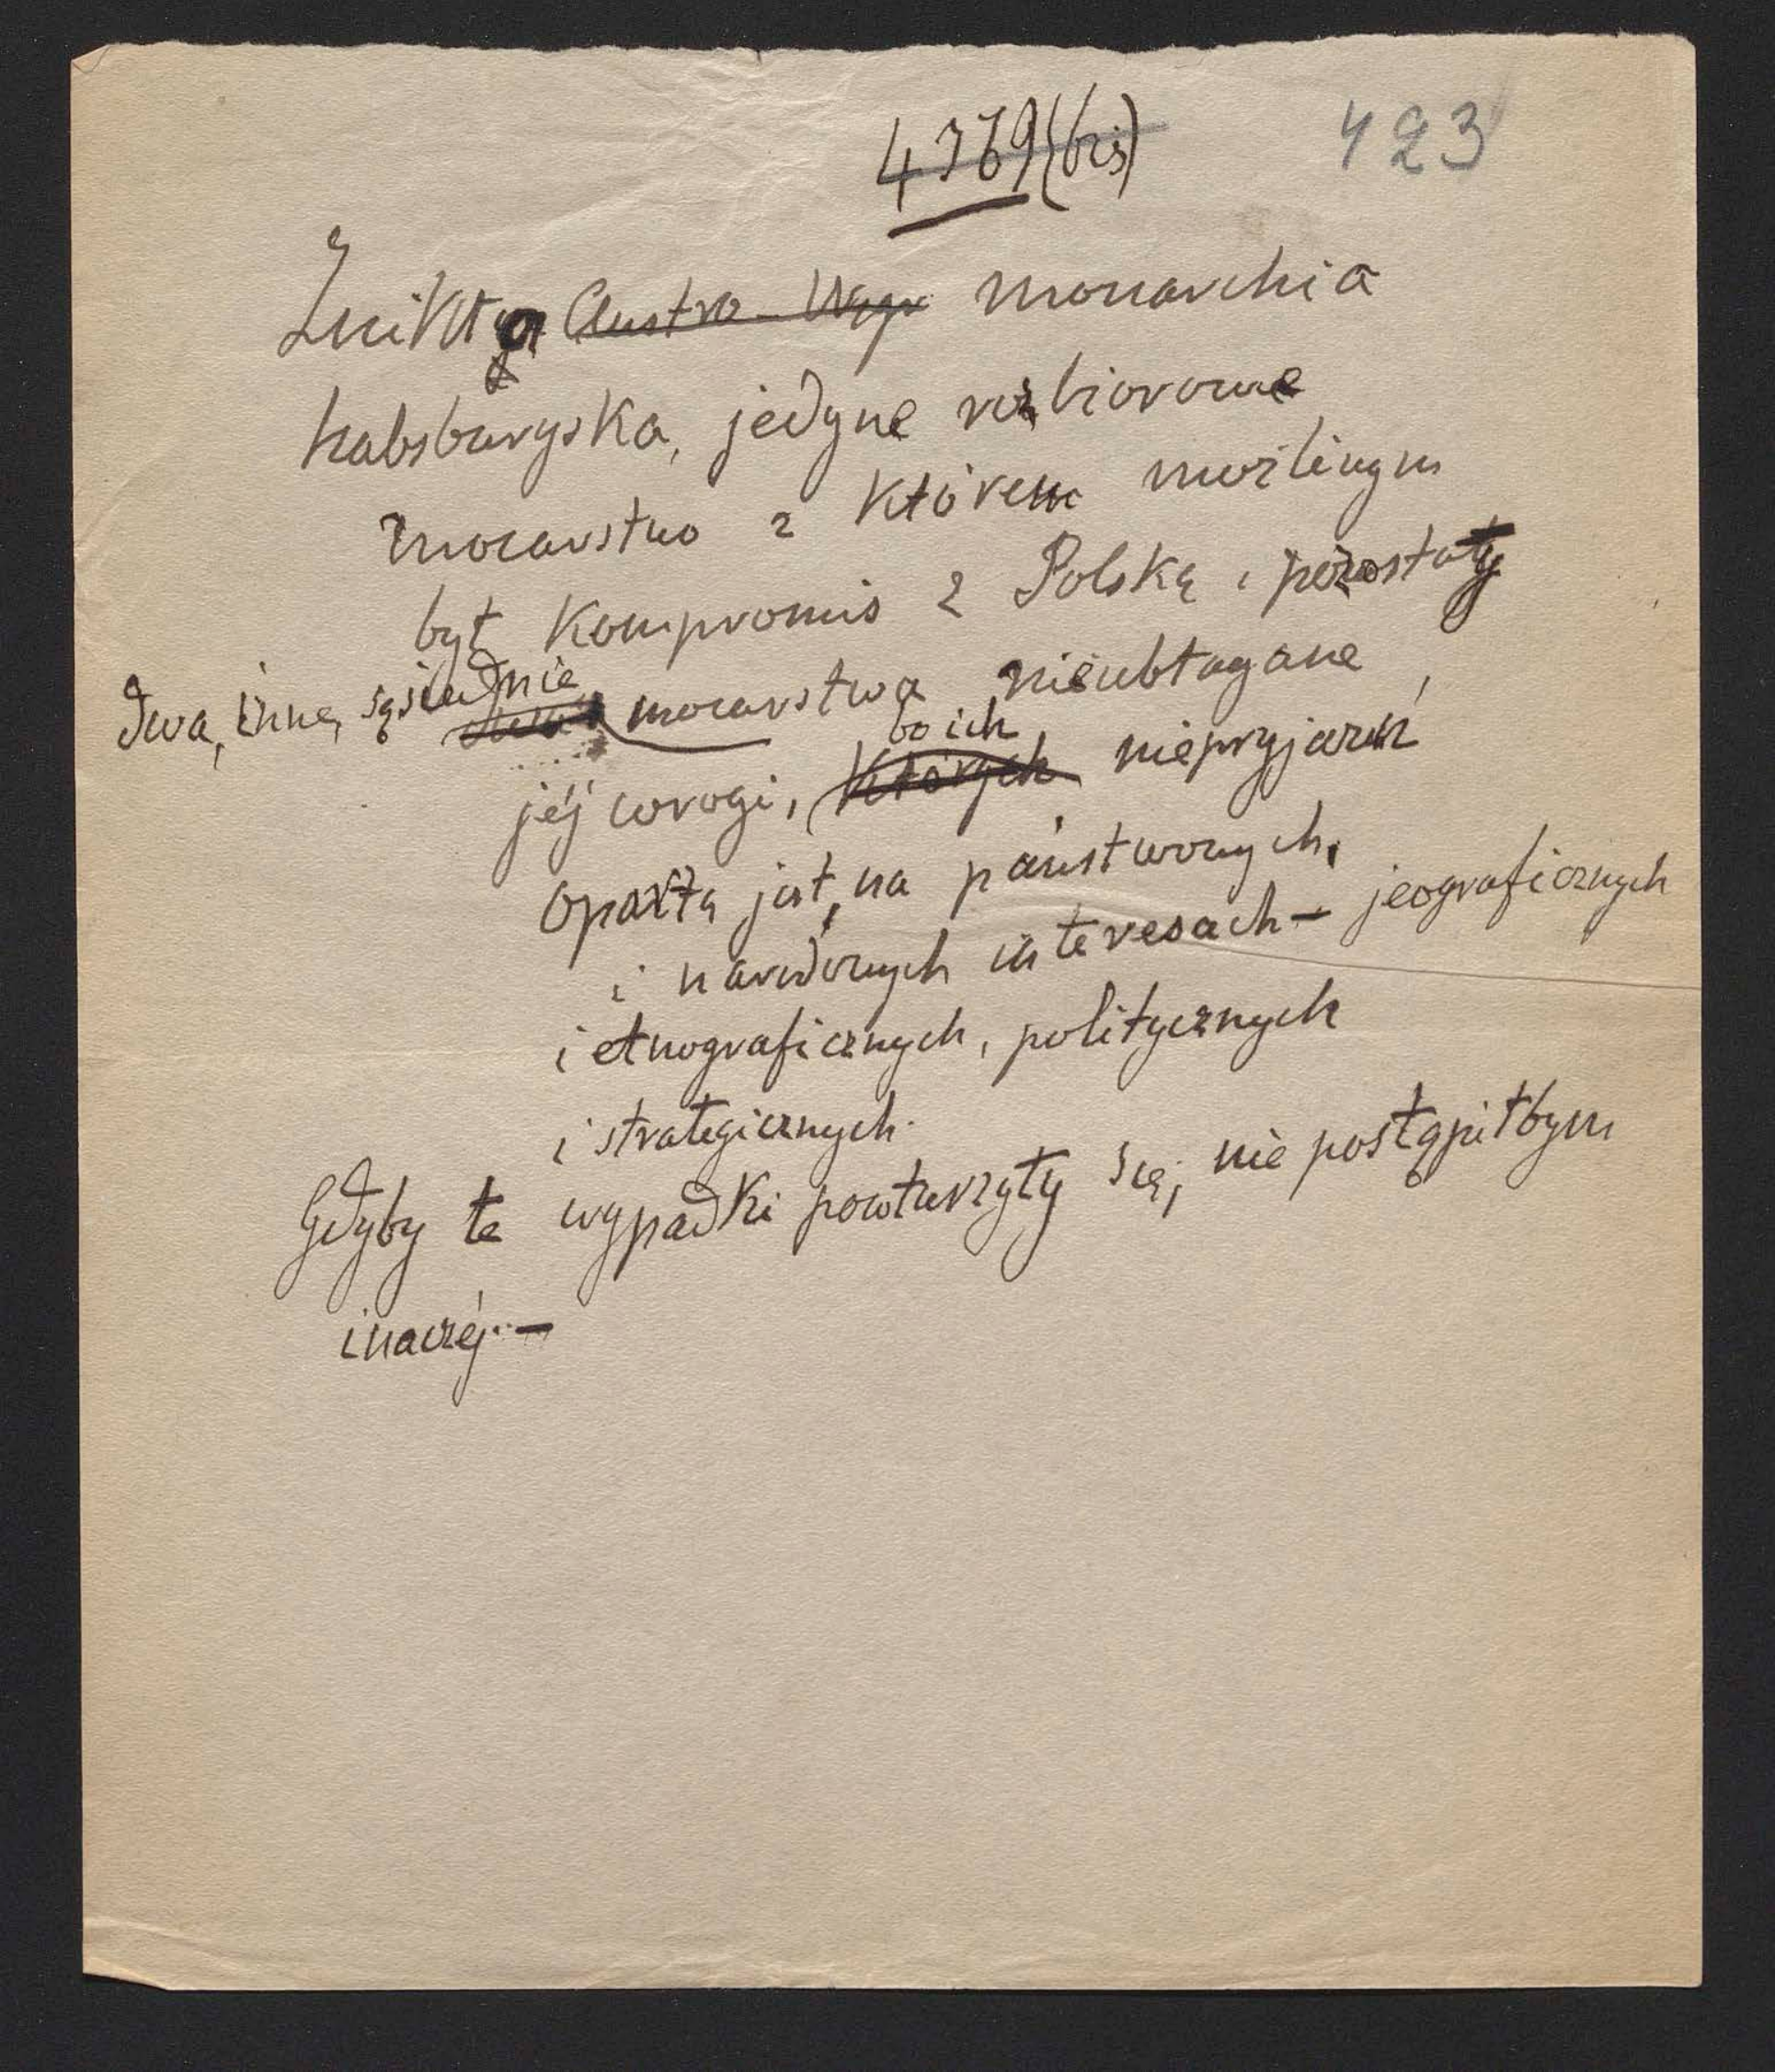 4769 (bis)
423
Znikła Austro-Węgr monarchia
habsburgska, jedyne rozbiorowe
mocarstwo z którem możliwym
był kompromis z Polską, pozostały
dwa, inne, sąsiednie mocarstwa nieubłagane,
bo ich
jéj wrogi, których nieprzyjaźń
opartą jest, na państwowych,
i narodowych interesach – jeograficznych
i etnograficznych, politycznych
i strategicznych.
Gdyby te wypadki powtórzyły się, nie postąpiłbym
inaczéj. –